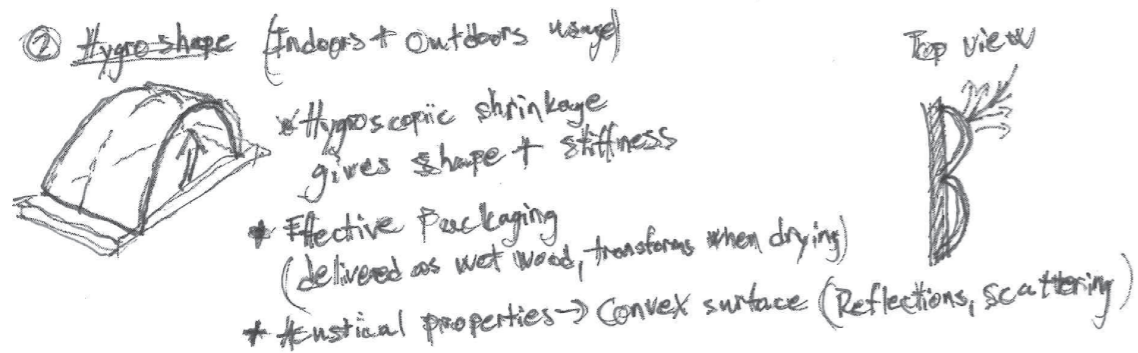 ② Hygroshape (Indoors + Outdoors usage)
Top view
* Hygroscopic shrinkage
gives shape + stiffness
* Effective Packaging
(delivered as wet wood, transforms when drying)
* Acustical properties → Convex surface (Reflections, scattering)